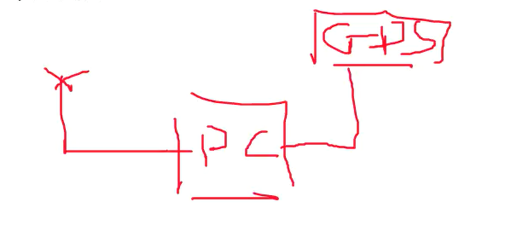 GPS
PC